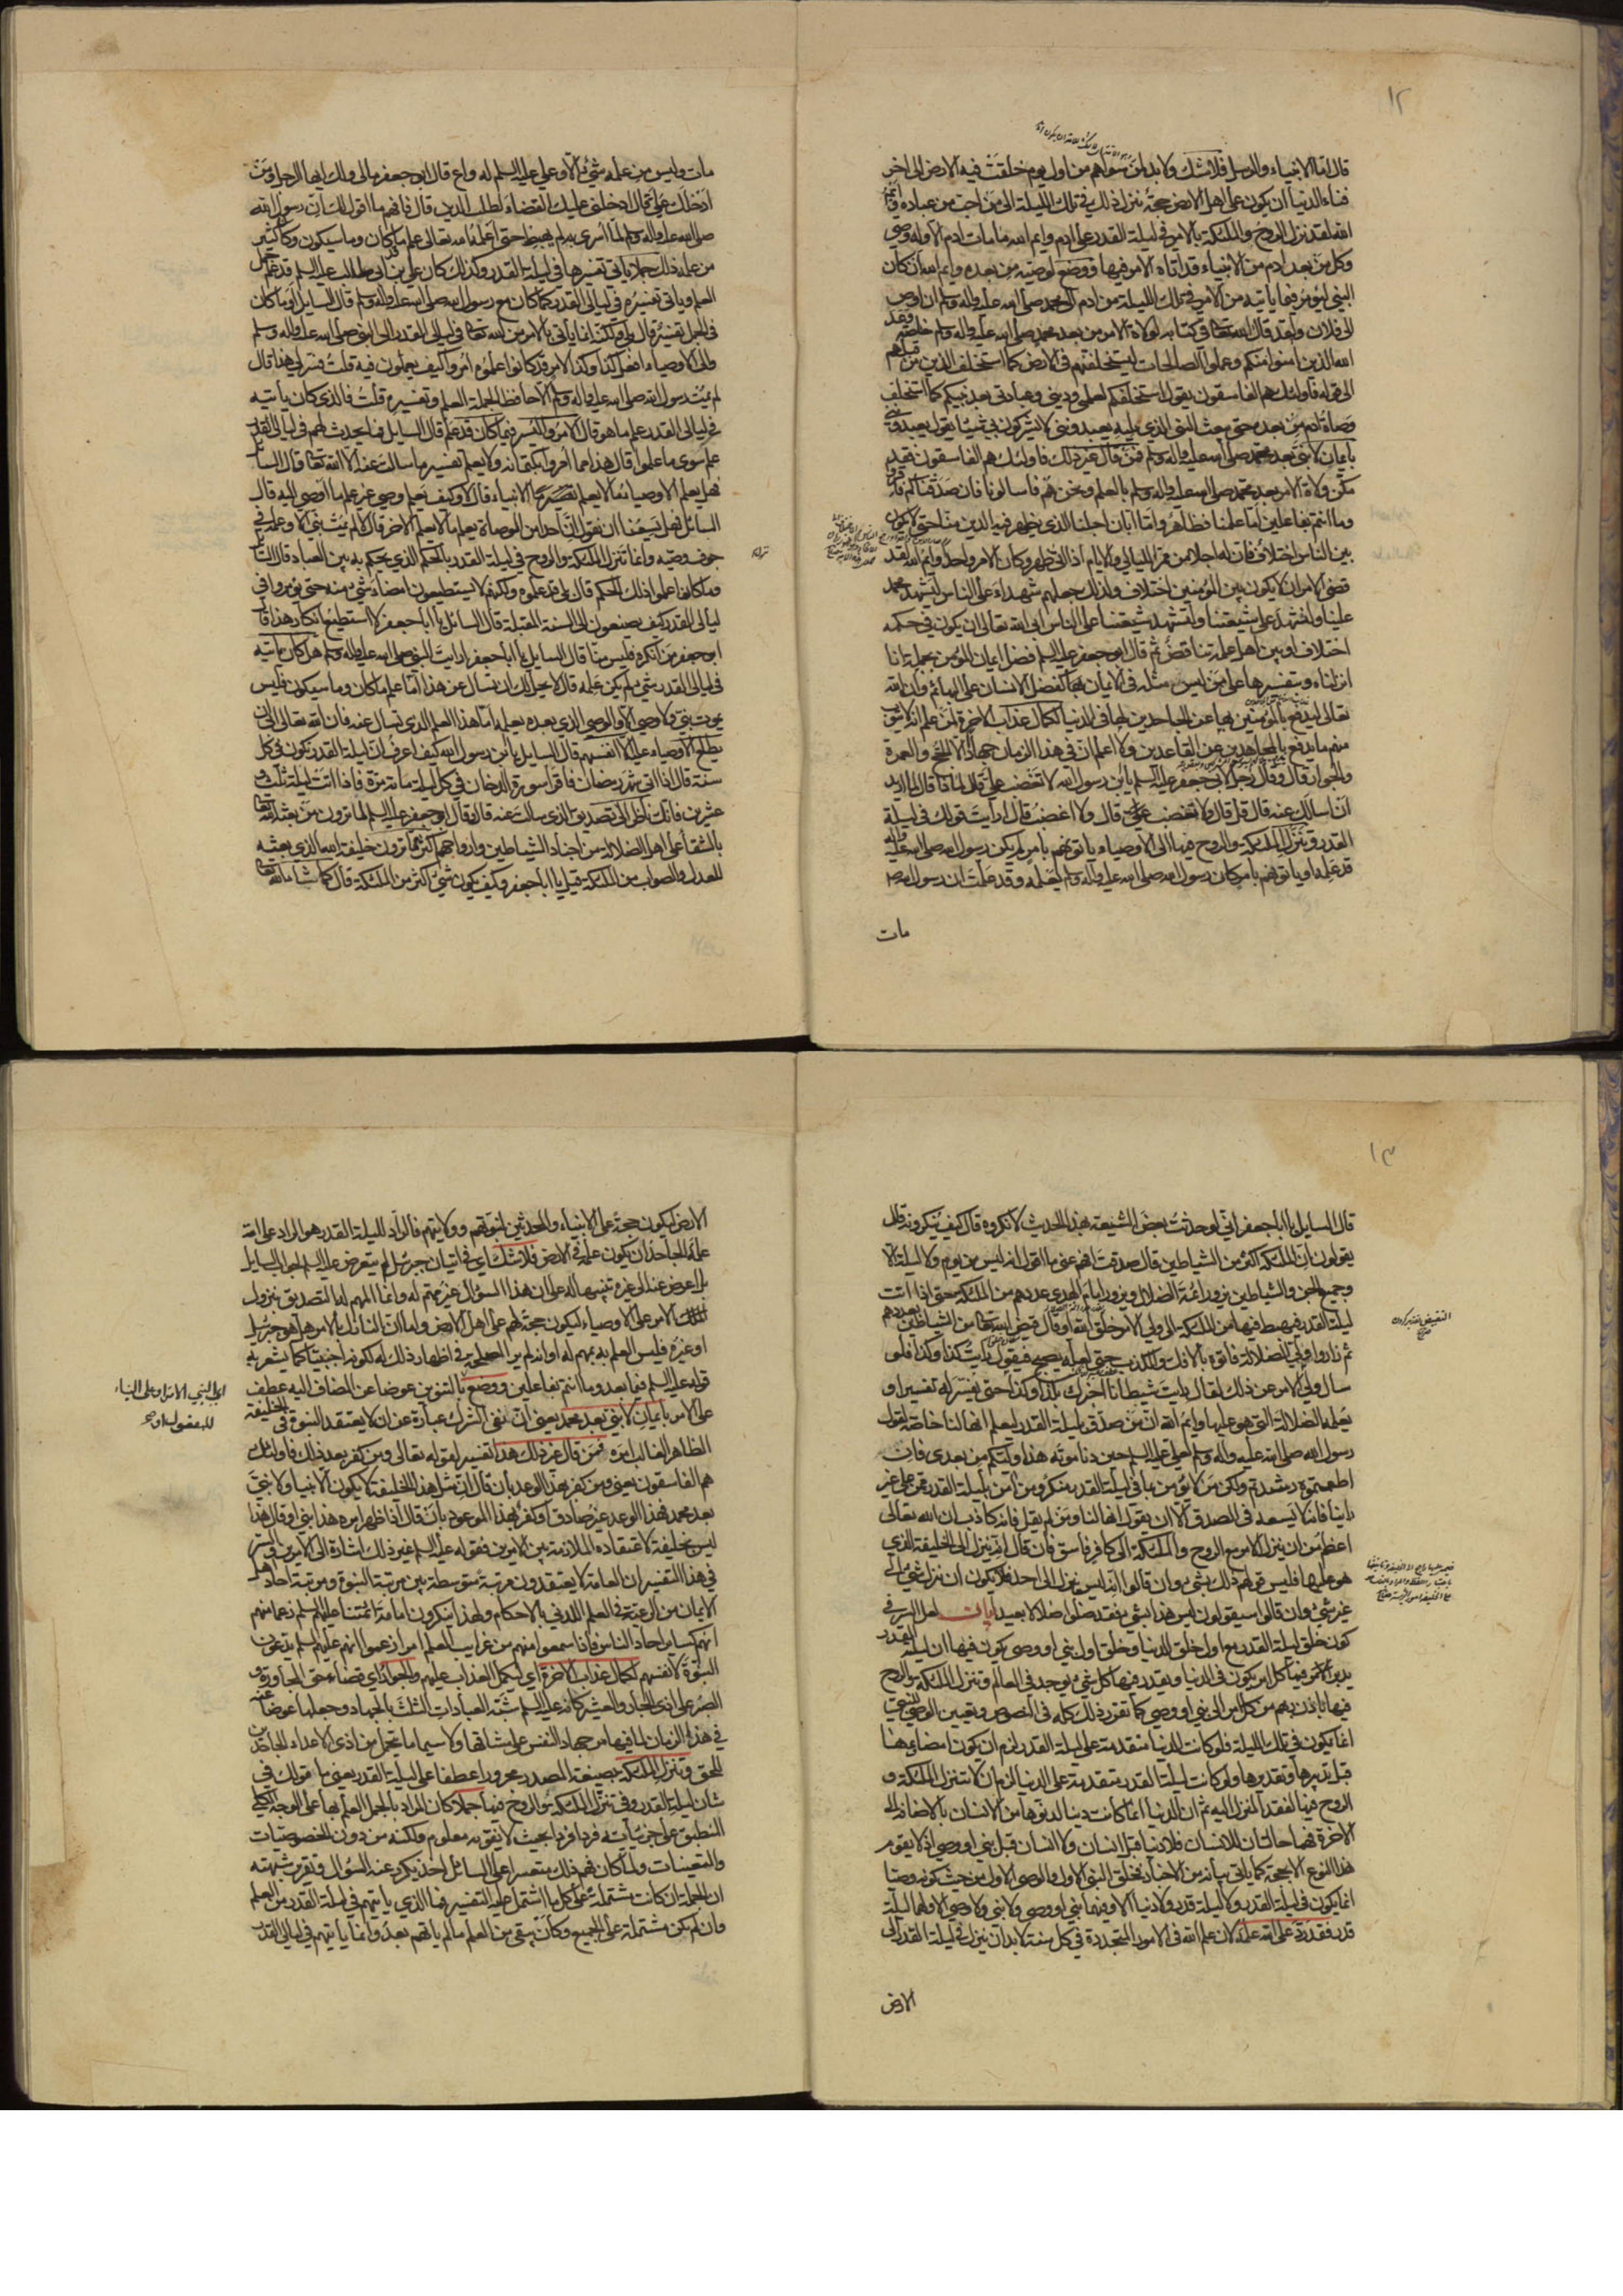 ١٢
قال اما الانبياء والرسل فلا شك ولا بد لمن سواهم من اول يوم خلقت فيه الارض الى اخر
فناء الدنيا ان يكون على اهل الارض حجة ينزل ذلك في تلك الليلة الى من احب من عباده وايم
الله لقد نزل الروح والملئكة بالامر في ليلة القدر على ادم وايم الله ما مات ادم الا وله وصي
وكل من بعد ادم من الانبياء قد اتاه الامر فيها ووضع لوصيته من بعده وايم الله ان كان
النبي ليؤمر فيما ياتيه من الامر في تلك الليلة من ادم الى محمد صلى الله عليه واله وسلم ان اوص
الى فلان ولقد قال الله تعالى في كتابه لولاة الامر من بعد محمد صلى الله عليه واله وسلم خاصة وعد
الله الذين امنوا منكم وعملوا الصالحات ليستخلفنهم في الارض كما استخلف الذين من قبلهم
الى قوله فاولئك هم الفاسقون يقول استخلفكم لعلمي وديني وعبادتي بعد نبيكم كما استخلف
وصاة ادم من بعده حتى يبعث النبي الذي يليه يعبدونني لا يشركون بي شيئا يقول يعبدونني
بايمان لا نبي بعد محمد صلى الله عليه واله وسلم فمن قال غير ذلك فاولئك هم الفاسقون فقد
مكن ولاة الامر بعد محمد صلى الله عليه واله وسلم بالعلم ونحن هم فاسالونا فان صدقناكم فاقروا
وما انتم بفاعلين اما علمنا فظاهر واما ابان اجلنا الذي يظهر فيه الدين منا حتى لا يكون
بين الناس اختلاف فان له اجلا من ممر الليالي والايام اذا اتى ظهر وكان الامر واحدا وايم الله لقد
قضى الامر ان لا يكون بين المؤمنين اختلاف ولذلك جعلهم شهداء على الناس ليشهد محمد
علينا ولنشهد على شيعتنا ولتشهد شيعتنا على الناس ابى الله تعالى ان يكون في حكمه
اختلاف او بين اهل علمه تناقض ثم قال ابو جعفر عليه السلم فضل ايمان المؤمن بحمله انا
انزلناه وبتفسيرها على من ليس مثله في الايمان بها كفضل الانسان على البهائم وان الله
تعالى ليدفع بالمؤمنين بها عن الجاحدين لها في الدنيا لكمال عذاب الاخرة لمن علم انه لا يتوب
منهم ما يدفع بالمجاهدين عن القاعدين ولا اعلم ان في هذا الزمان جهادا الا الحج والعمرة
والجوار قال وقال رجل لابي جعفر عليه السلم يا بن رسول الله لا تغضب علي قال لماذا قال لما اريد
ان اسالك عنه قال قل قال ولا تغضب علي قال ولا اغضب قال ارايت قولك في ليلة
القدر وتنزل الملئكة والروح فيها الى الاوصياء ياتونهم بامر لم يكن رسول الله صلى الله عليه واله
قد علمه او ياتونهم بامر كان رسول الله صلى الله عليه واله وسلم يعلمه وقد علمت ان رسول الله ص
مات
مات وليس من علمه شيء الا وعلي عليه السلم له واع قال ابو جعفر مالي ولك ايها الرجل ومن
ادخلك علي قال ادخلني عليك القضاء لطلب الدين قال فافهم ما اقول لك ان رسول الله
صلى الله عليه واله وسلم لما اسري به لم يهبط حتى اعلمه الله تعالى علم ما قد كان وما سيكون وكان كثير
من علمه ذلك جملا ياتي تفسيرها في ليلة القدر وكذلك كان علي بن ابي طالب عليه السلم قد علم جمل
العلم وياتي تفسيره في ليالي القدر كما كان مع رسول الله صلى الله عليه واله وسلم قال السايل او ما كان
في الجمل تفسير قال بلى ولكنه انما ياتي بالامر من الله تعالى في ليالي القدر الى النبي صلى الله عليه واله وسلم
والى الاوصياء افعل كذا وكذا لامر قد كانوا علموه امروا كيف يعملون فيه قلت فسر لي هذا قال
لم يمت رسول الله صلى الله عليه واله وسلم الا حافظا لجملة العلم وتفسيره قلت فالذي كان ياتيه
في ليالي القدر علم ما هو قال الامر واليسر فيما كان قد علم قال السايل فما يحدث لهم في ليالي القدر
علم سوى ما علموا قال هذا مما امروا بكتمانه ولا يعلم تفسير ما سالت عنه الا الله تعالى قال السايل
فهل يعلم الاوصياء ما لا يعلم الانبياء قال لا وكيف يعلم وصي غير علم ما اوصي اليه قال
السائل فهل يسعنا ان نقول ان احدا من الوصاة يعلم ما لا يعلم الاخر قال لا لم يمت نبي الا وعلمه في
جوف وصيه وانما تنزل الملئكة والروح في ليلة القدر بالحكم الذي يحكم به بين العباد قال السايل
وما كانوا علموا ذلك الحكم قال بلى قد علموه ولكنهم لا يستطيعون امضاء شيء منه حتى يؤمروا في
ليالي القدر كيف يصنعون الى السنة المقبلة قال السائل يا ابا جعفر لا استطيع انكار هذا قال
ابو جعفر من انكره فليس منا قال السايل يا ابا جعفر ارايت النبي صلى الله عليه واله وسلم هل كان ياتيه
في ليالي القدر شيء لم يكن علمه قال لا يحل لك ان تسال عن هذا اما علم ما كان وما سيكون فليس
يموت نبي ولا وصي الا والوصي الذي بعده يعلمه اما هذا العلم الذي تسال عنه فان الله تعالى ابى ان
يطلع الاوصياء عليه الا انفسهم قال السايل يا بن رسول الله كيف اعرف ان ليلة القدر تكون في كل
سنة قال اذا اتى شهر رمضان فاقرا سورة الدخان في كل ليلة مائة مرة فاذا اتت ليلة ثلث و
عشرين فانك ناظر الى تصديق الذي سالت عنه قال وقال ابو جعفر عليه السلم لما ترون من بعثه الله
بالشقاء على اهل الضلالة من اجناد الشياطين وازواجهم اكثر مما ترون خليفة الله الذي بعثه
للعدل والصواب من الملئكة قيل يا ابا جعفر وكيف يكون شيء اكثر من الملئكة قال كما شاء الله تعالى
١٣
قال السايل يا ابا جعفر اني لو حدثت بعض الشيعة بهذا الحديث لانكروه قال كيف ينكرونه قال
يقولون ان الملئكة اكثر من الشياطين قال صدقت افهم عني ما اقول انه ليس من يوم ولا ليلة الا
وجميع الجن والشياطين تزور ائمة الضلال ويزور ايام الهدى عددهم من الملئكة حتى اذا اتت
ليلة القدر فيهبط فيها من الملئكة الى ولي الامر خلق الله او قال قيض الله تعالى من الشياطين بعددهم
ثم زاروا ولي الضلالة فاتوه بالافك والكذب حتى لعله يصبح فيقول رايت كذا وكذا فلو
سال ولي الامر عن ذلك لقال رايت شيطانا اخبرك بكذا وكذا حتى يفسر له تفسيرا و
يعلمه الضلالة التي هو عليها وايم الله ان من صدق بليلة القدر ليعلم انها لنا خاصة لقول
رسول الله صلى الله عليه واله وسلم لعلي عليه السلم حين دنا موته هذا وليكم من بعدي فان
اطعتموه رشدتم ولكن من لا يؤمن بما في ليلة القدر منكر ومن امن بليلة القدر ممن على غير
راينا فانه لا يسعه في الصدق الا ان يقول انها لنا ومن لم يقل فانه كاذب ان الله تعالى
اعظم من ان ينزل الامر مع الروح والملئكة الى كافر فاسق فان قال انه ينزل الى الخليفة الذي
هو عليها فليس قولهم ذلك بشيء وان قالوا انه ليس ينزل الى احد فلا يكون ان ينزل شيء الى
غير شيء وان قالوا سيقولون ليس هذا بشيء فقد ضلوا ضلالا بعيدا بيان لعل السر في
كون خلق ليلة القدر مع اول خلق الدنيا وخلق اول نبي او وصي يكون فيها ان ليلة القدر
يدبر فيها كل امر يكون في الدنيا ويقدر فيها كل شيء يوجد في العالم وتنزل الملئكة والروح
فيها باذن ربهم من كل امر الى نبي او وصي كما تقرر ذلك كله في النصوص وتعيين الوصي للنبي
انما يكون في تلك الليلة فلو كانت الدنيا متقدمة على ليلة القدر لزم ان يكون امضاؤها
قبل تدبيرها وتقديرها ولو كانت ليلة القدر متقدمة على الدنيا لزم ان لا تتنزل الملئكة و
الروح فيها لفقد المنزل اليه ثم ان الدنيا انما كانت دنيا لدنوها من الانسان بالاضافة الى
الاخرة فهما حالتان للانسان فلا دنيا قبل انسان ولا انسان قبل نبي او وصي اذ لا يقوم
هذا النوع الا بحجة كما ياتي بيانه من الاخبار فخلق النبي الاول والوصي الاول من حيث كونه وصيا
انما يكون في ليلة القدر ولا ليلة قدر ولا دنيا الا وفيهما نبي او وصي ولا نبي ولا وصي الا ولهما ليلة
قدر فقد رد على الله علمه لان علم الله في الامور المتجددة في كل سنة لا بد ان ينزل في ليلة القدر الى
الارض
الارض ليكون حجة على الانبياء والمحدثين لنبوتهم وولايتهم فالراد لليلة القدر هو الراد على الله
علمه الجاحد ان يكون علمه في الارض فلا شك اي في اتيان جبرئيل لم يتعرض عليه السلم لجواب السايل
بل اعرض عنه الى غيره تنبيها له على ان هذا السؤال غير مهم له وانما المهم له التصديق بنزول
الامر على الاوصياء ليكون حجة لهم على اهل الارض واما ان النازل بالامر هل هو جبرئيل
او غيره فليس العلم به بمهم له او انه لم ير المصلحة في اظهار ذلك له لكونه اجنبيا كما يشعر به
قوله عليه السلم فيما بعد وما انتم بفاعلين ووضع بالتنوين عوضا عن المضاف اليه عطف
على الامر بايمان لا نبي بعد محمد يعني ان نفي الشرك عبارة عن ان لا يعتقد النبوة في الخليفة
الظاهر الغالب امره فمن قال غير ذلك هذا تفسير لقوله تعالى ومن كفر بعد ذلك فاولئك
هم الفاسقون يعني ومن كفر بهذا الوعد بان قال ان مثل هذا الخليفة لا يكون الا نبيا ولا نبي
بعد محمد فهذا الوعد غير صادق او كفر بهذا الموعود بان قال اذا ظهر امره هذا نبي او قال هذا
ليس بخليفة لاعتقاده الملازمة بين الامرين فقوله عليه السلم غير ذلك اشارة الى الامرين والسر
في هذا التفسير ان العامة لا يعتقدون مرتبة متوسطة بين مرتبة النبوة ومرتبة احاد اهل
الايمان من الرعية في العلم اللدني بالاحكام ولهذا ينكرون امامة ائمتنا عليهم السلم زعما منهم
انهم كسائر احاد الناس فاذا سمعوا منهم من غرايب العلم امرا زعموا انهم عليهم السلم يدعون
النبوة لانفسهم لكمال عذاب الاخرة اي ليكمل العذاب عليهم والجوار اي قضاء حق المجاورة و
الصبر على اذى الجار والعشير كانه عليه السلم شبه العبادات الثلث بالجهاد وجعلها عوضا عنه
في هذا الزمان لما فيها من جهاد النفس على مشاقها ولا سيما ما يتحمل من اذى الاعداء الجاحدين
للحق وتنزل الملئكة بصيغة المصدر مجرورا عطفا على ليلة القدر يعني ما قولك في
شان ليلة القدر وفي تنزل الملئكة والروح فيها جملا كان المراد بالجمل العلم بها على الوجه الكلي
المنطبق على جزئياته فردا فردا بحيث لا يفوته معلوم ولكنه من دون الخصوصيات
والتعينات ولما كان فهم ذلك متعسرا على السائل اخذ يكرر عنه السؤال وتقرير شبهته
ان الجملة ان كانت مشتملة على كل ما اشتمل عليه التفسير فما الذي ياتيهم في ليلة القدر من العلم
وان لم يكن مشتملة على الجميع وكان يبقى من العلم ما لم ياتهم بعد وانما ياتيهم في ليالي القدر